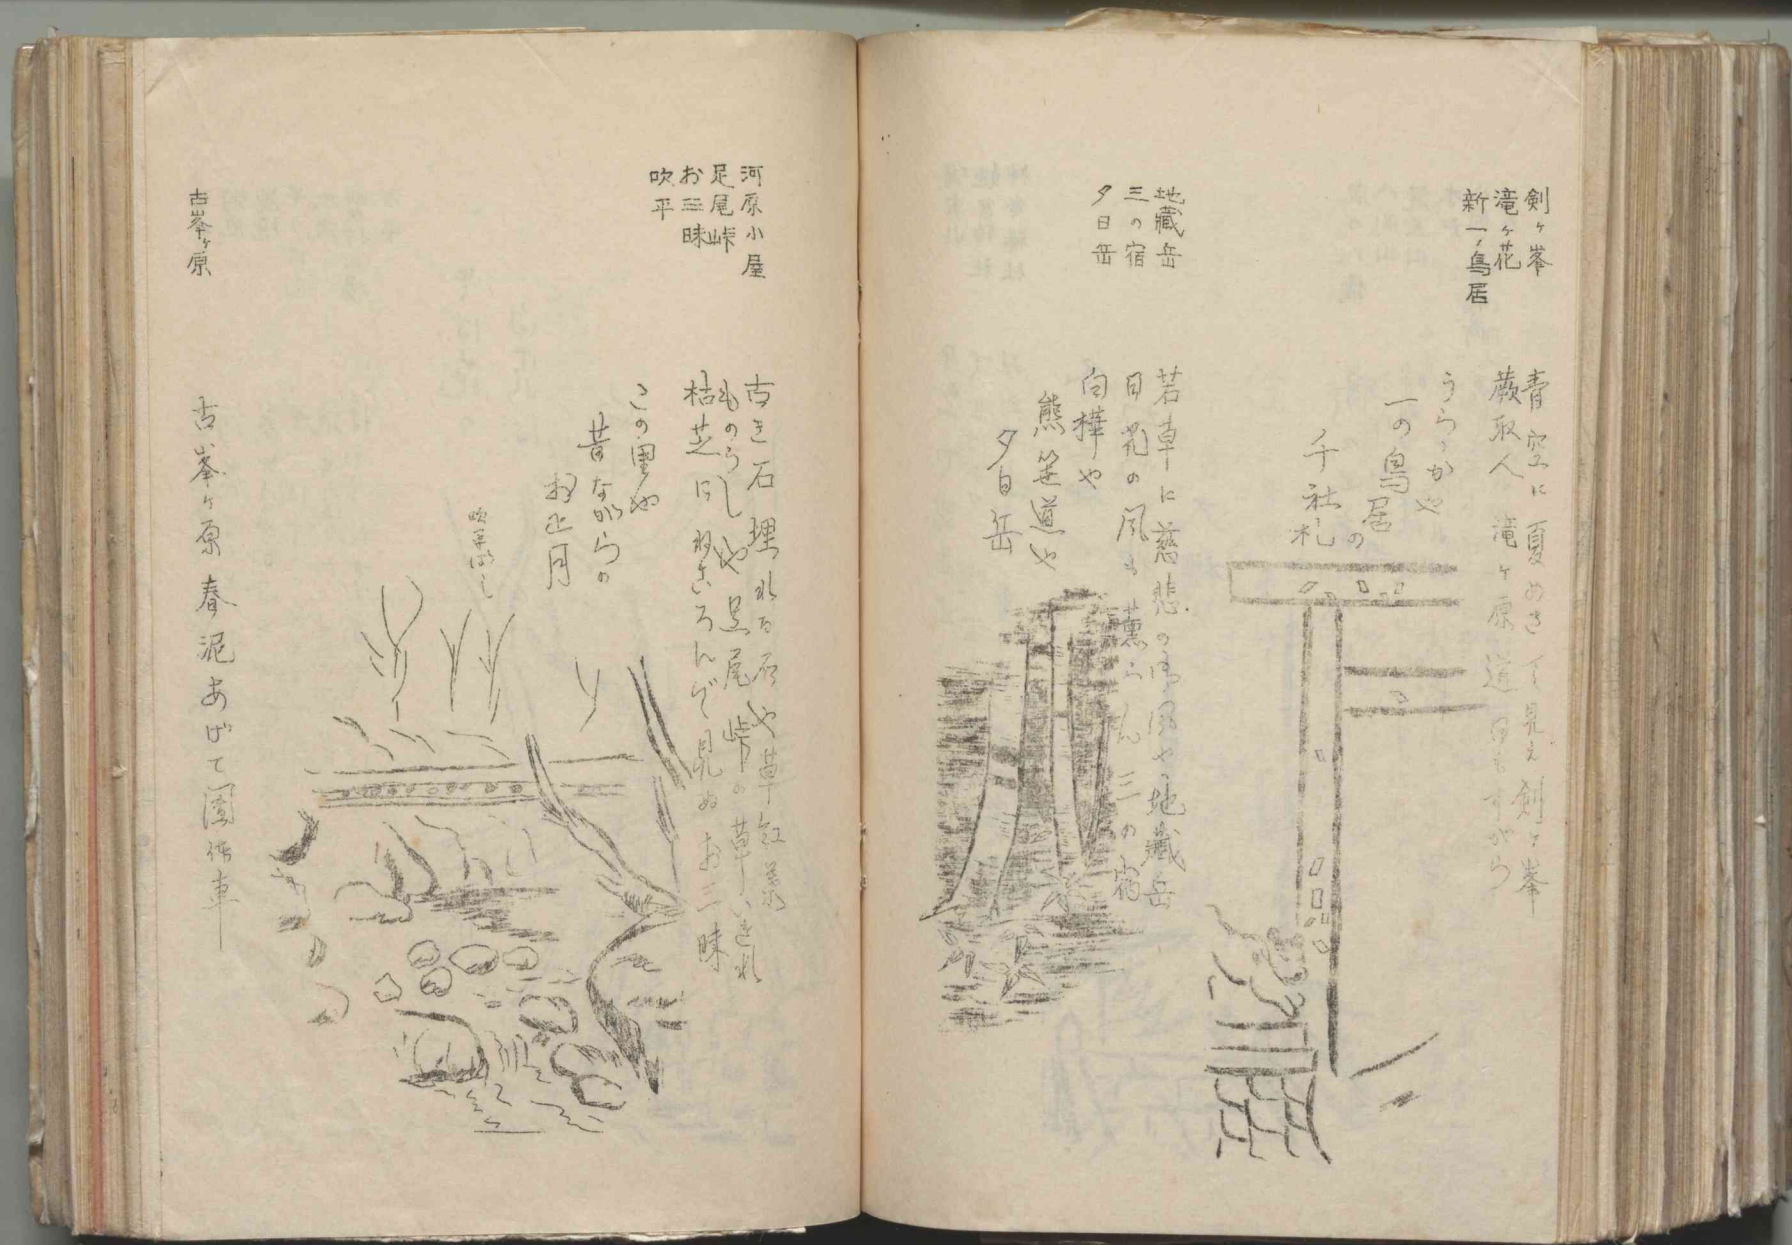 剣ヶ峯
滝ヶ花
新一ノ鳥居
青空に夏めきて見え剣ヶ峯
蕨取人滝ヶ原道日もすがら
うらゝかや
一の鳥居の
千社札
地蔵岳
三の宿
夕日岳
若草に慈悲の御風や地蔵岳
目花の風も薫らん三の宿
白樺や
熊笹道や
夕日岳
河原小屋
足尾峠
お三昧
吹平
古き石埋れる石や草紅葉
ものうしや足尾峠の草いきれ
枯芝にねころんで見ぬお三昧
この里や
昔ながらの
お正月
古峯ヶ原
古峯ヶ原春泥あげて園伜車